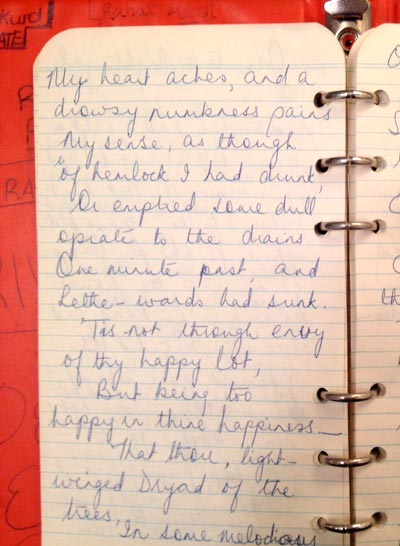 kurd
ATE
My heart aches, and a
drowsy numbness pains
My sense, as though
"of hemlock I had drunk,
Or emptied some dull
opiate to the drains
One minute past, and
Lethe-wards had sunk.
'Tis not through envy
of thy happy lot,
But being too
happy in thine happiness_
That thou, light-
winged Dryad of the
trees,
In some melodious